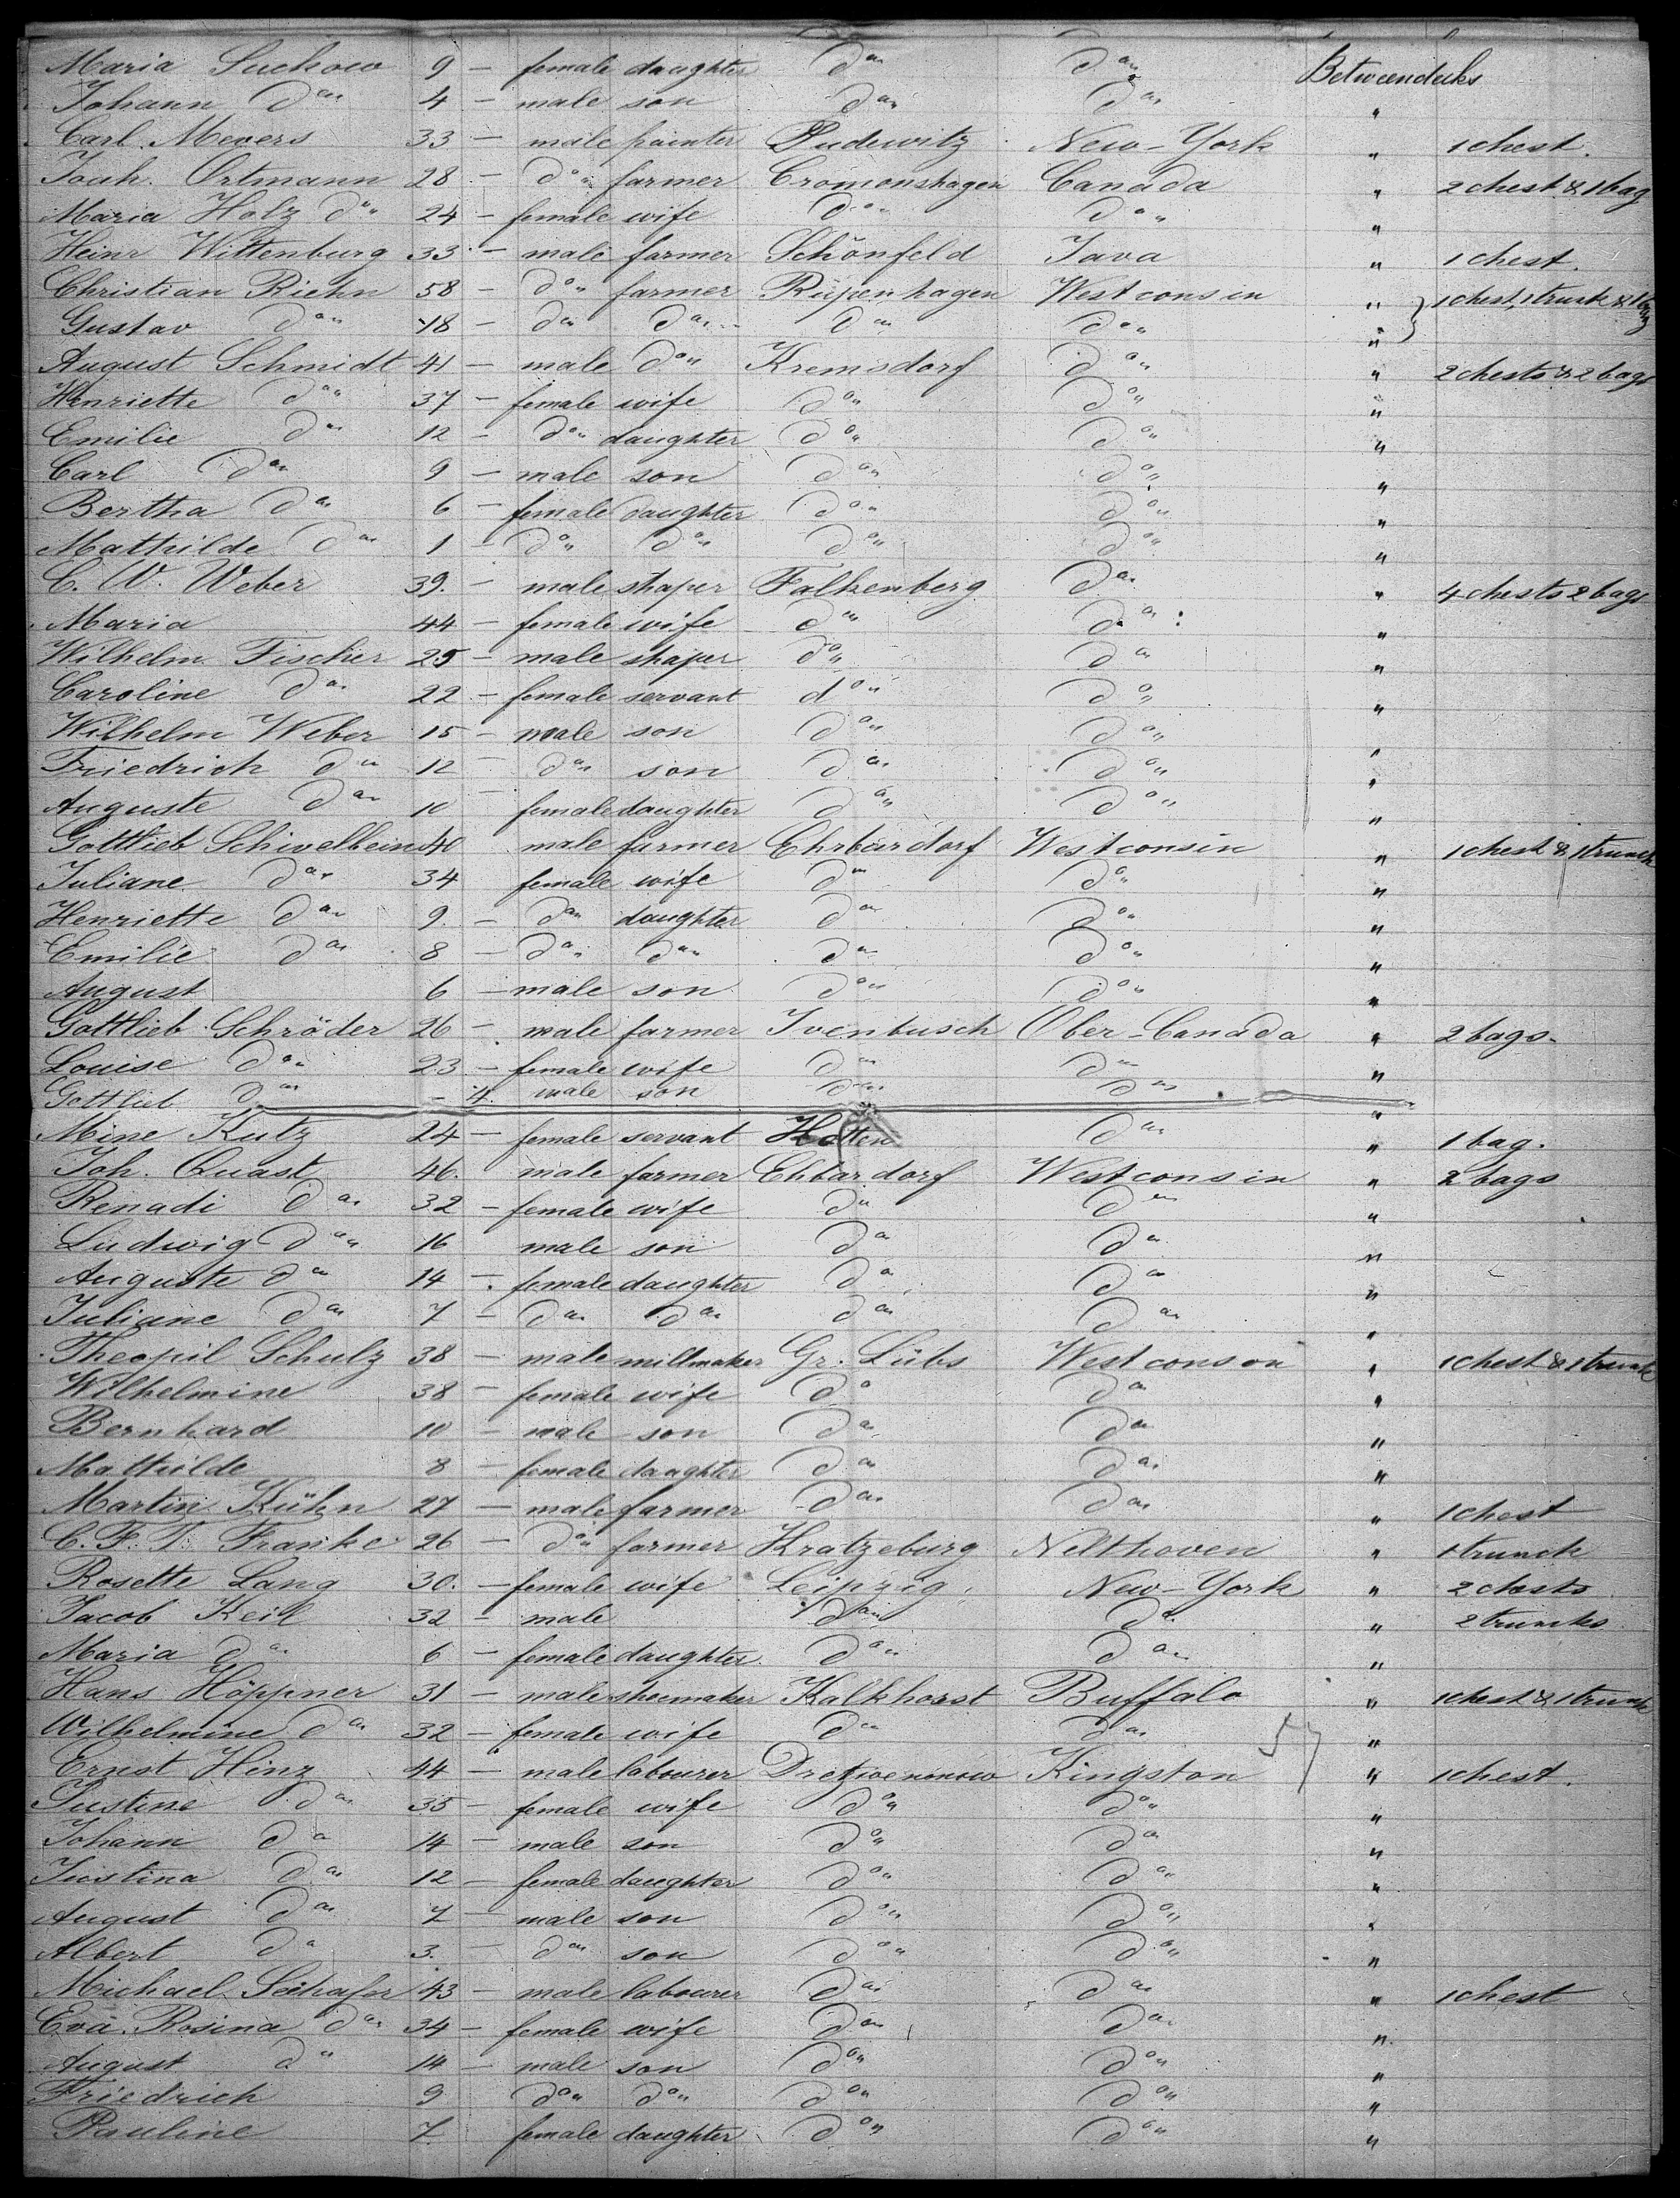 Maria Suchow 9 — female daughter do do Betweendeks
Johann do 4 — male son do do "
Carl Meyers 33 — male painter Pudewitz New-York " 1 chest.
Joah. Ortmann 28 — do farmer Cromonshagen Canada " 2 chest & 1 bag
Maria Holz do 24 — female wife do do "
Heinr Wittenburg 33 — male farmer Schönfeld Java " 1 chest.
Christian Riehn 58 — do farmer Rüpenhagen Westconsin " 1 chest, 1 trunk & 1 bag
Gustav do 18 — do do do do "
August Schmidt 41 — male do Kremsdorf do " 2 chests & 2 bags
Henriette do 37 — female wife do do "
Emilie do 12 — do daughter do do "
Carl do 9 — male son do do "
Bertha do 6 — female daughter do do "
Mathilde do 1 — do do do do "
C. W. Weber 39. — male shaper Falkenberg do " 4 chests 2 bags
Maria 44 — female wife do do "
Wilhelm Fischer 25 — male shaper do do "
Caroline do 22 — female servant do do "
Wilhelm Weber 15 — male son do do "
Friedrich do 12 — do son do do "
Auguste do 10 — female daughter do do "
Gottlieb Schivelbein 40 male farmer Ehrbardorf Westconsin " 1 chest & 1 trunck
Juliane do 34 female wife do do "
Henriette do 9. — do daughter do do "
Emilie do 8 — do do do do "
August 6 — male son do do "
Gottlieb Schröder 26 — male farmer Ivenbusch Ober-Canada " 2 bags.
Louise do 23 — female wife do do "
Gottlieb do — 4. male son do do "
Mine Kutz 24 — female servant Hotten do " 1 bag.
Joh. Quast 46. male farmer Ehbardorf Westconsin " 2 bags
Renadi do 32 — female wife do do "
Ludwig do 16 male son do do "
Auguste do 14 — female daughter do do "
Juliane do 7 — do do do do "
Theopil Schulz 38 — male millmaker Gr. Lübs Westconson " 1 chest & 1 trunk
Wilhelmine 38 — female wife do do "
Bernhard 10 — male son do do "
Mathilde 8 — female daughter do do "
Martin Kühn 27 — male farmer do do " 1 chest
C. F. T. Franke 26 — do farmer Kratzeburg Nelthoven " 1 trunck
Rosette Lang 30. — female wife Leipzig New-York " 2 chests
Jacob Keil 32 — male do do " 2 truncks
Maria do 6 — female daughter do do "
Hans Höppner 31 — male shoemaker Kalkhorst Buffalo " 1 chest & 1 trunk
Wilhelmine do 32 — female wife do do 57 "
Ernst Hinz 44 — male labourer Dretzwenmow Kingston " 1 chest.
Justine do 35 — female wife do do "
Johann do 14 — male son do do "
Justina do 12 — female daughter do do "
August do 7 — male son do do "
Albert do 3. — do son do do "
Michael Schafer 43 — male labourer do do " 1 chest
Eva Rosina do 34 — female wife do do "
August do 14 — male son do do "
Friedrich 9 do do do do "
Pauline 7 female daughter do do "